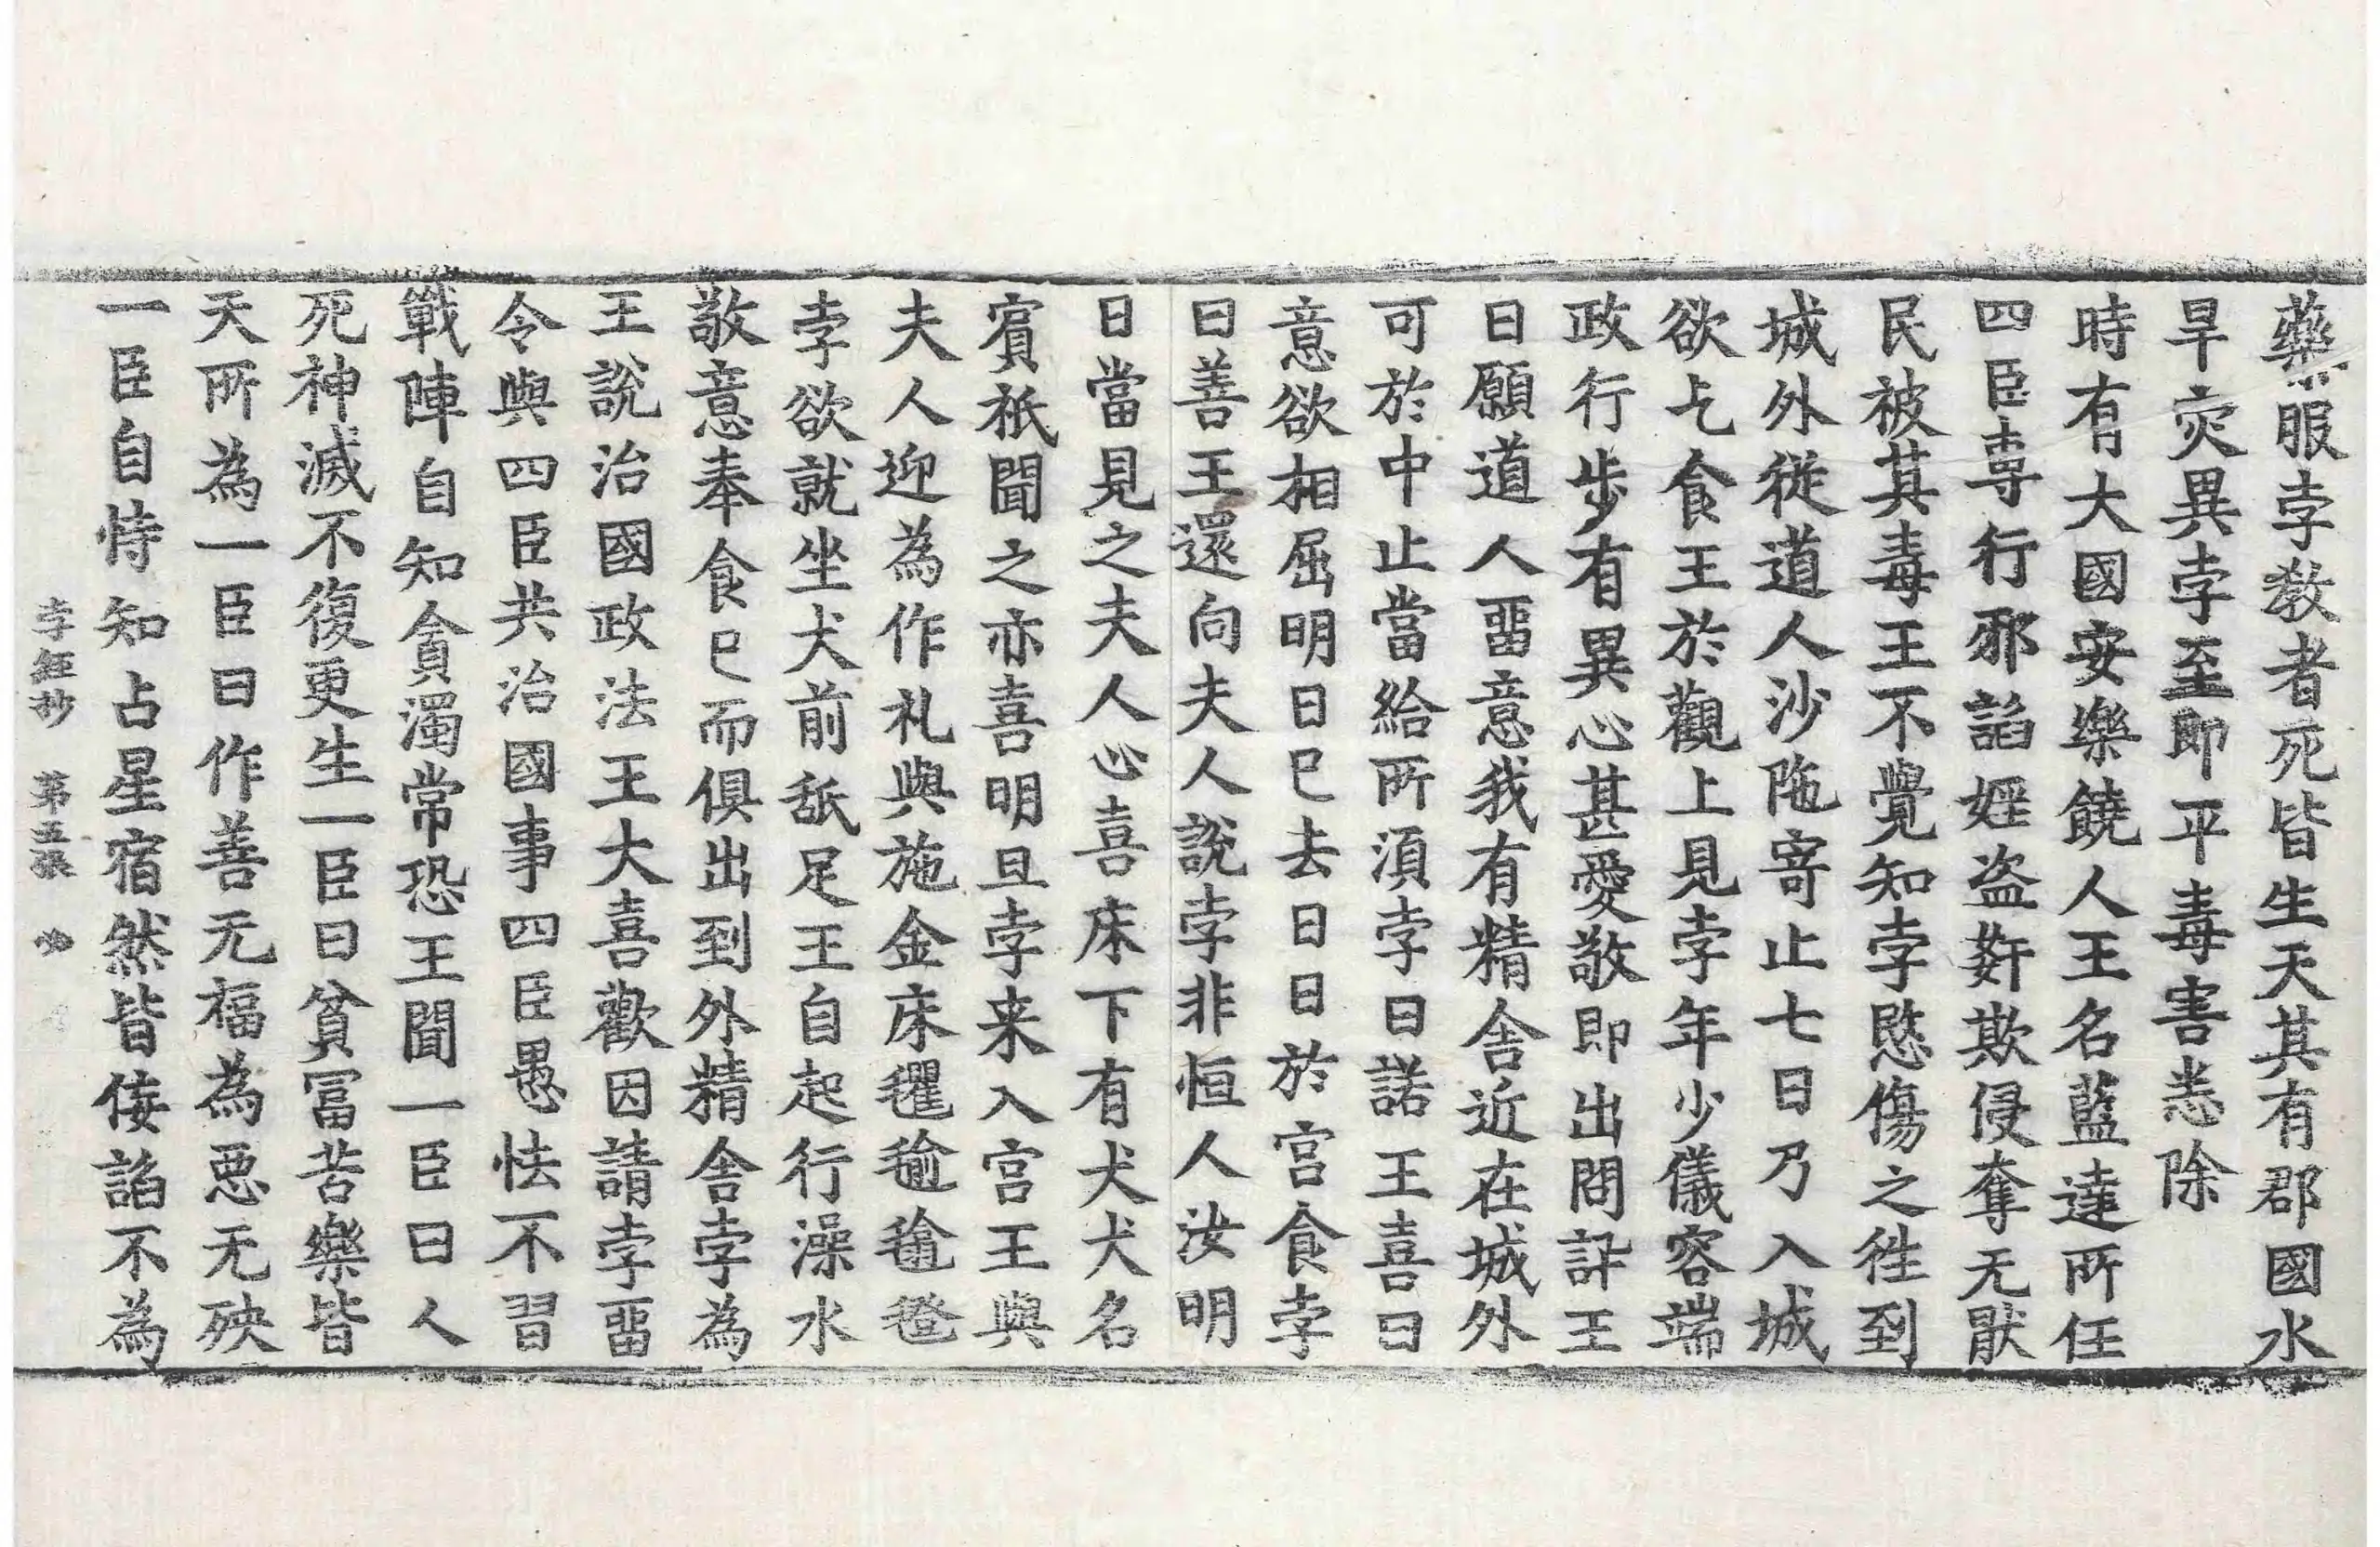 藥服孛教者死皆生天其有郡國水
旱灾異孛至即平毒害悉除
時有大國安樂饒人王名藍達所任
四臣專行邪謟婬盗姧欺侵奪无猒
民被其毒王不覺知孛愍傷之徃到
城外従道人沙陁寄止七日乃入城
欲乞食王於觀上見孛年少儀容端
政行步有異心甚愛敬即出問訊王
曰願道人畱意我有精舍近在城外
可於中止當給所湏孛曰諾王喜曰
意欲相屈明日巳去日日於宮食孛
曰善王還向夫人說孛非恒人汝明
日當見之夫人心喜床下有犬犬名
賔祇聞之亦喜明旦孛来入宮王與
夫人迎為作礼與施金床氍毹毹㲪
孛欲就坐犬前舐足王自起行澡水
敬意奉食巳而俱出到外精舍孛為
王說治國政法王大喜歡因請孛畱
令與四臣共治國事四臣愚怯不習
戰陣自知貪濁常恐王聞一臣曰人
死神滅不復更生一臣曰貧冨苦樂皆
天所為一臣曰作善无福為惡无殃
一臣自恃知占星宿然皆倿謟不為
孛經抄 第五張